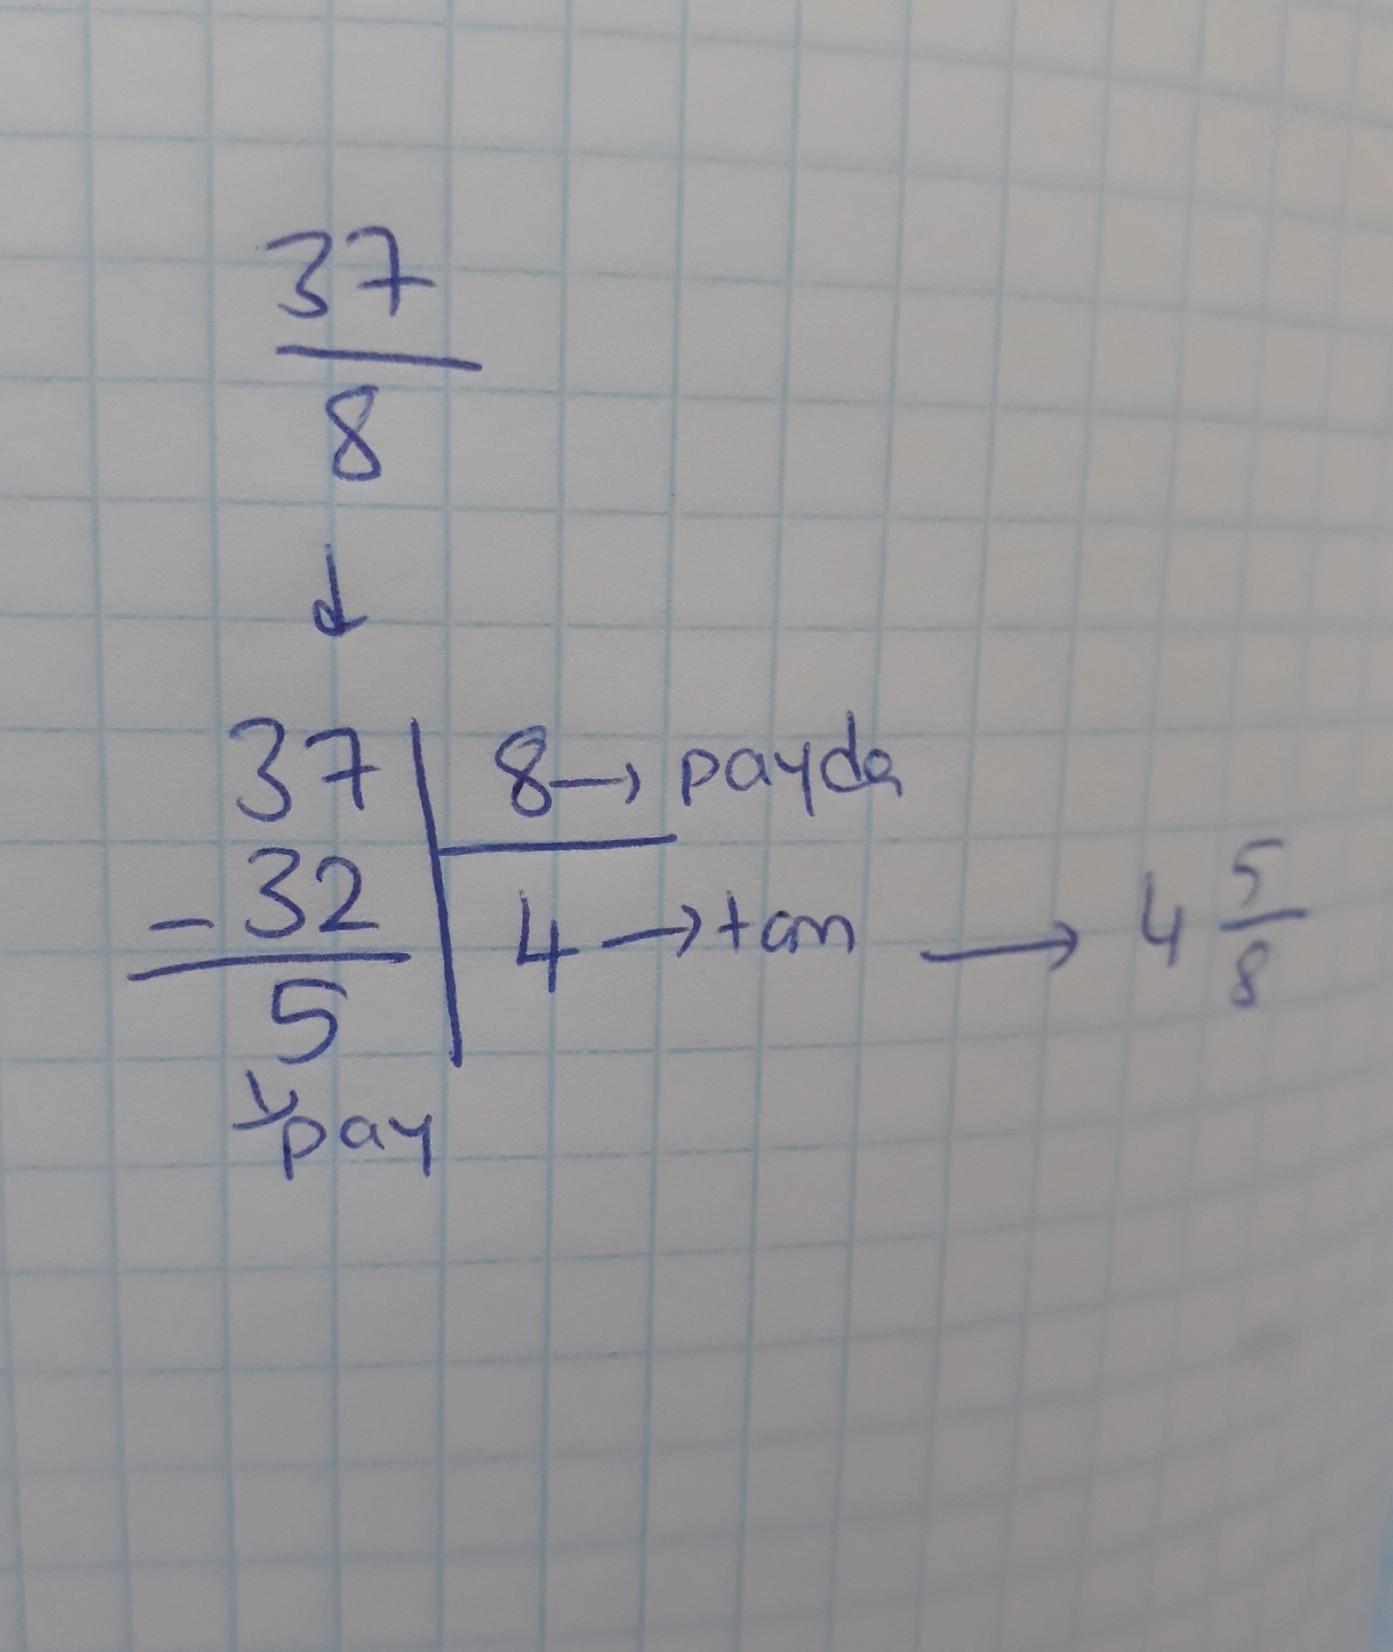 37
8
37 8 → payda
- 32
4 → tam → 4 5/8
5
pay